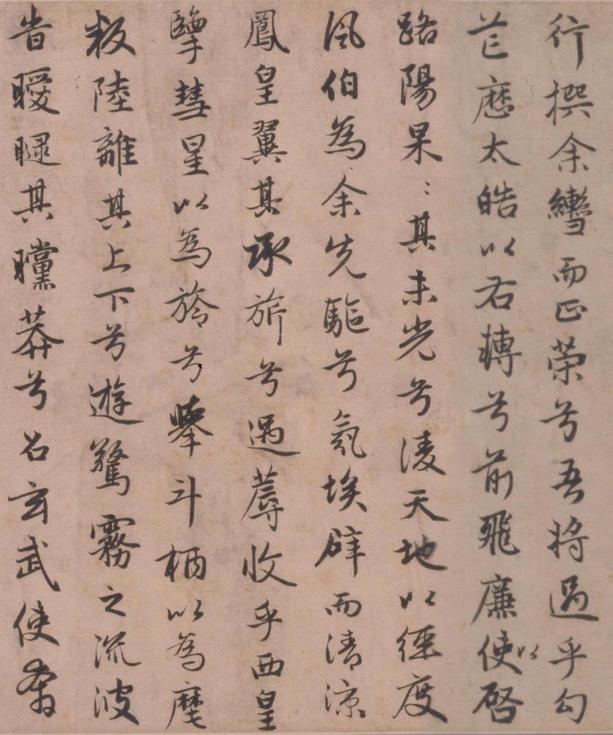 行撰余轡而正策兮吾將過乎勾
芒歷太皓以右轉兮前飛廉使以啓
路陽杲〻其未光兮淩天地以徑度
風伯為余先驅兮氛埃辟而清涼
鳳皇翼其承旂兮遇蓐收乎西皇
擥彗星以為旍兮舉斗柄以為麾
叛陸離其上下兮遊驚霧之流波
旹曖曃其曭莽兮召玄武使奔